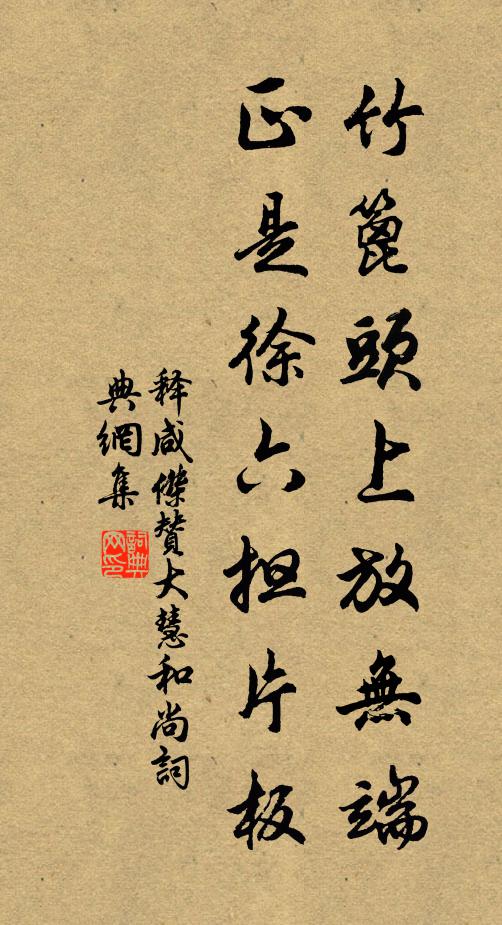 竹篦頭上放無端
正是徐六担片板
释咸傑賛大慧和尚詞
典網集
詞典
网印